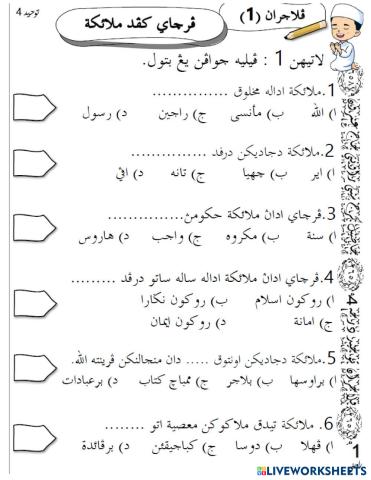 توحيد 4
ڤلاجران (1)
ڤرچاي كڤد ملائكة
لاتيهن 1 : ڤيليه جواڤن يڠ بتول.
1.ملائكة اداله مخلوق ...............
ا) الله ب) مأنسي ج) راجين د) رسول
2.ملائكة دجاديكن درڤد ...............
ا) اير ب) چهيا ج) تانه د) اڤي
3.ڤرچاي ادان ملائكة حكومن...............
ا) سنة ب) مكروه ج) واجب د) هاروس
4.ڤرچاي ادان ملائكة اداله ساله ساتو درڤد .........
ا) روكون اسلام ب) روكون نڬارا
ج) امانة د) روكون إيمان
5.ملائكة دجاديكن اونتوق ..... دان منجالنكن ڤرينته الله.
ا) براوسها ب) بلاجر ج) ممباچ كتاب د) برعبادات
6. ملائكة تيدق ملاكوكن معصية اتو ........
ا) ڤهلا ب) دوسا ج) كباجيقكن د) برڤائدة
4
1
LIVEWORKSHEETS